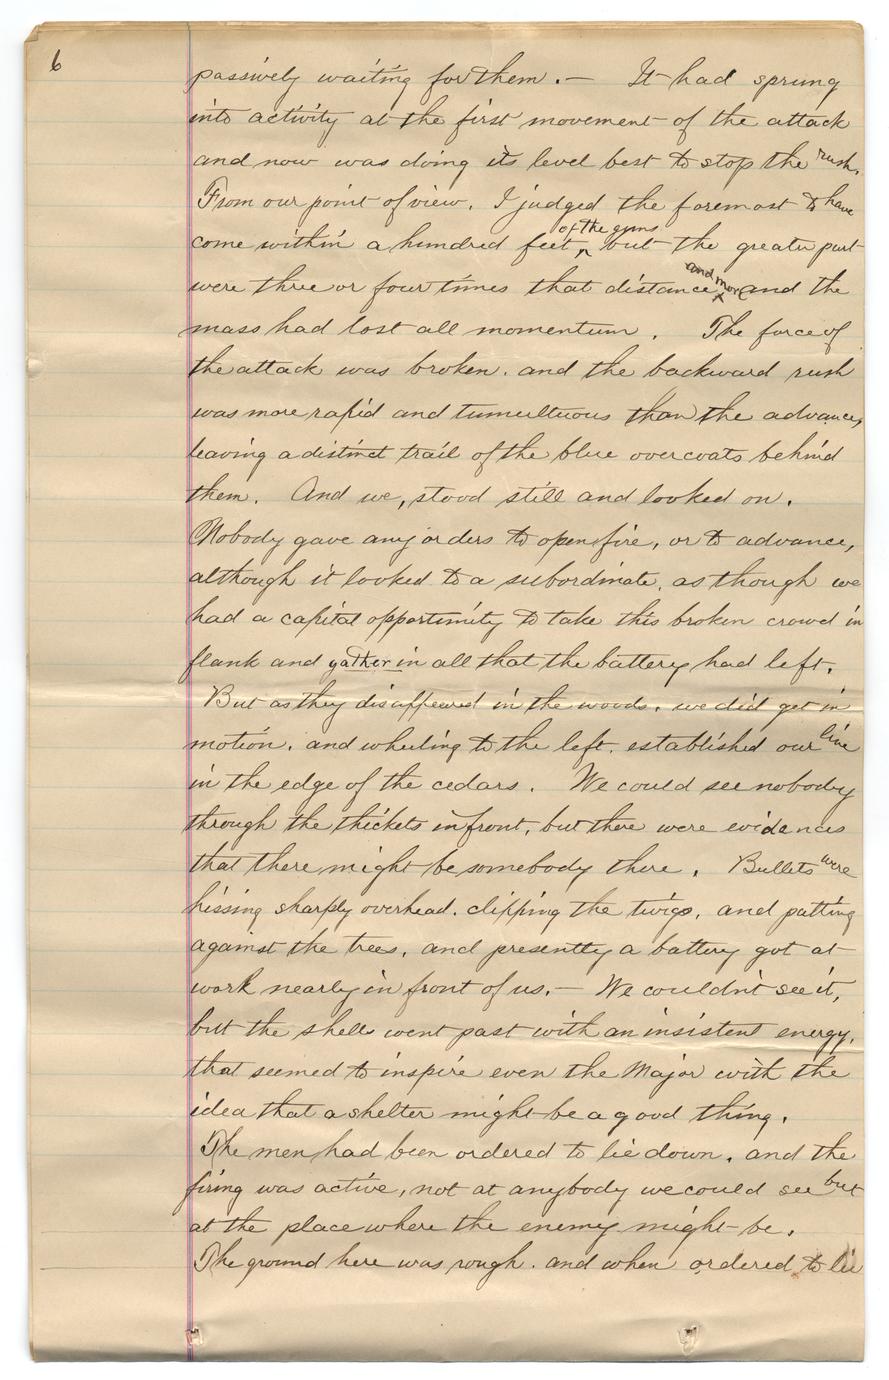 6
passively waiting for them. — It had sprung
into activity at the first movement of the attack
and now was doing its level best to stop the rush.
From our point of view, I judged the foremost to have
come within a hundred feet ^ of the guns but the greater part
were three or four times that distance ^ and more and the
mass had lost all momentum. The force of
the attack was broken. and the backward rush
was more rapid and tumultuous than the advance,
leaving a distinct trail of the blue overcoats behind
them. And we, stood still and looked on.
Nobody gave any orders to open fire, or to advance,
although it looked to a subordinate, as though we
had a capital opportunity to take this broken crowd in
flank and gather in all that the battery had left.
But as they disappeared in the woods. we did get in
motion. and wheeling to the left. established our line
in the edge of the cedars. We could see nobody
through the thickets in front, but there were evidences
that there might be somebody there. Bullets were
hissing sharply overhead. clipping the twigs, and patting
against the trees, and presently a battery got at
work nearly in front of us. — We couldn't see it,
but the shells went past with an insistent energy,
that seemed to inspire even the Major with the
idea that a shelter might be a good thing.
The men had been ordered to lie down. and the
firing was active, not at anybody we could see but
at the place where the enemy might be.
The ground here was rough. and when ordered to lie